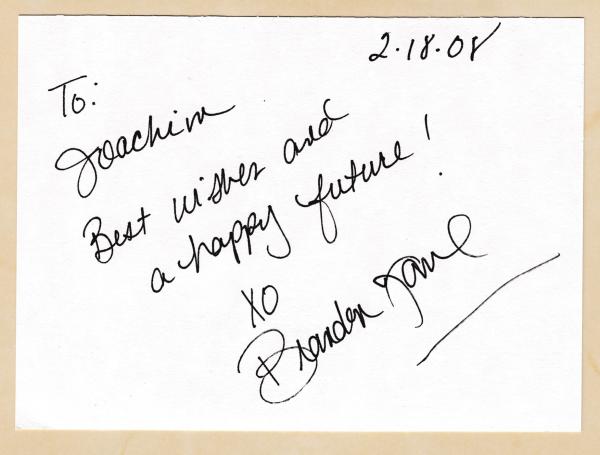 2.18.08
To:
Joachim
Best wishes and
a happy future!
XO
Branden